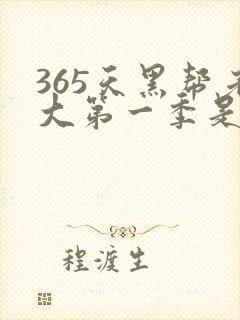 365天黑帮老
大第一季是
程渡生